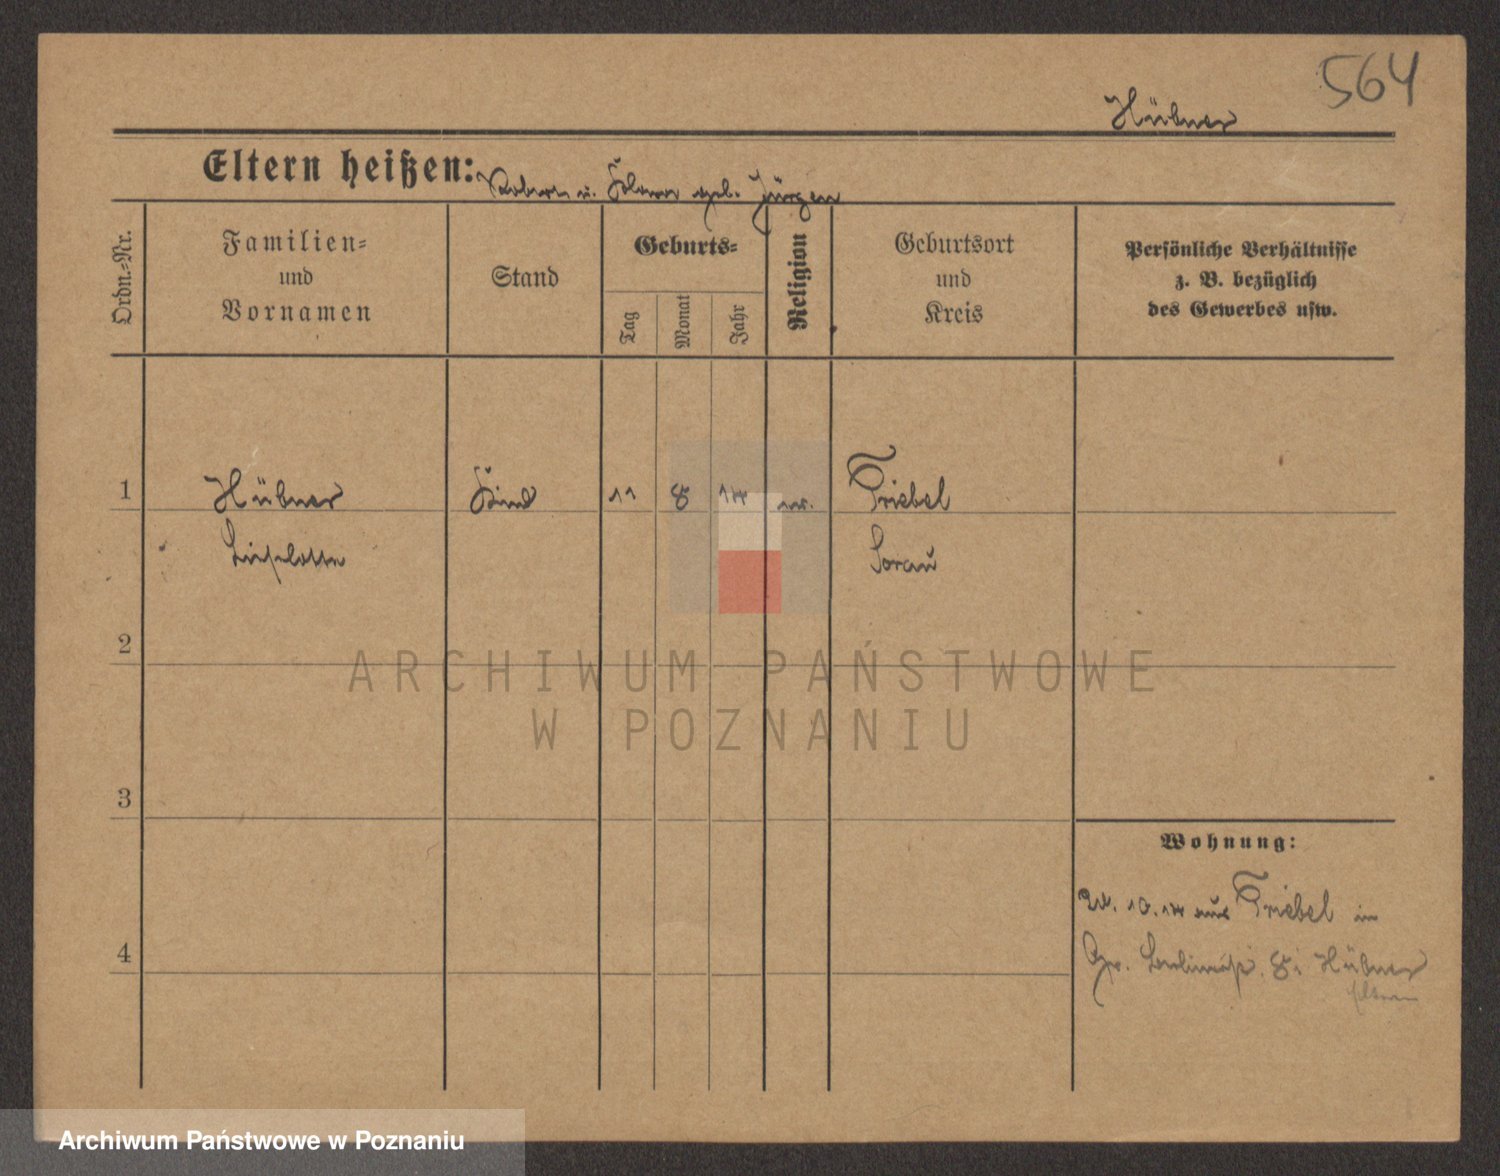 564
Hübner
Eltern heißen: Robert u. geb. Jürgen
Ordn.-Nr.
Familien-
und
Vornamen
Stand
Geburts-
Tag
Monat
Jahr
Religion
Geburtsort
und
Kreis
Persönliche Verhältnisse
z. B. bezüglich
des Gewerbes usw.
1 Hübner Kind 11 8 14 ev. Triebel
Lieselotte Sorau
2
ARCHIWUM PAŃSTWOWE
W POZNANIU
3
Wohnung:
10.14 aus Triebel in
Gr. Berlinerstr. 8 Hübner
Eltern
4
Archiwum Państwowe w Poznaniu